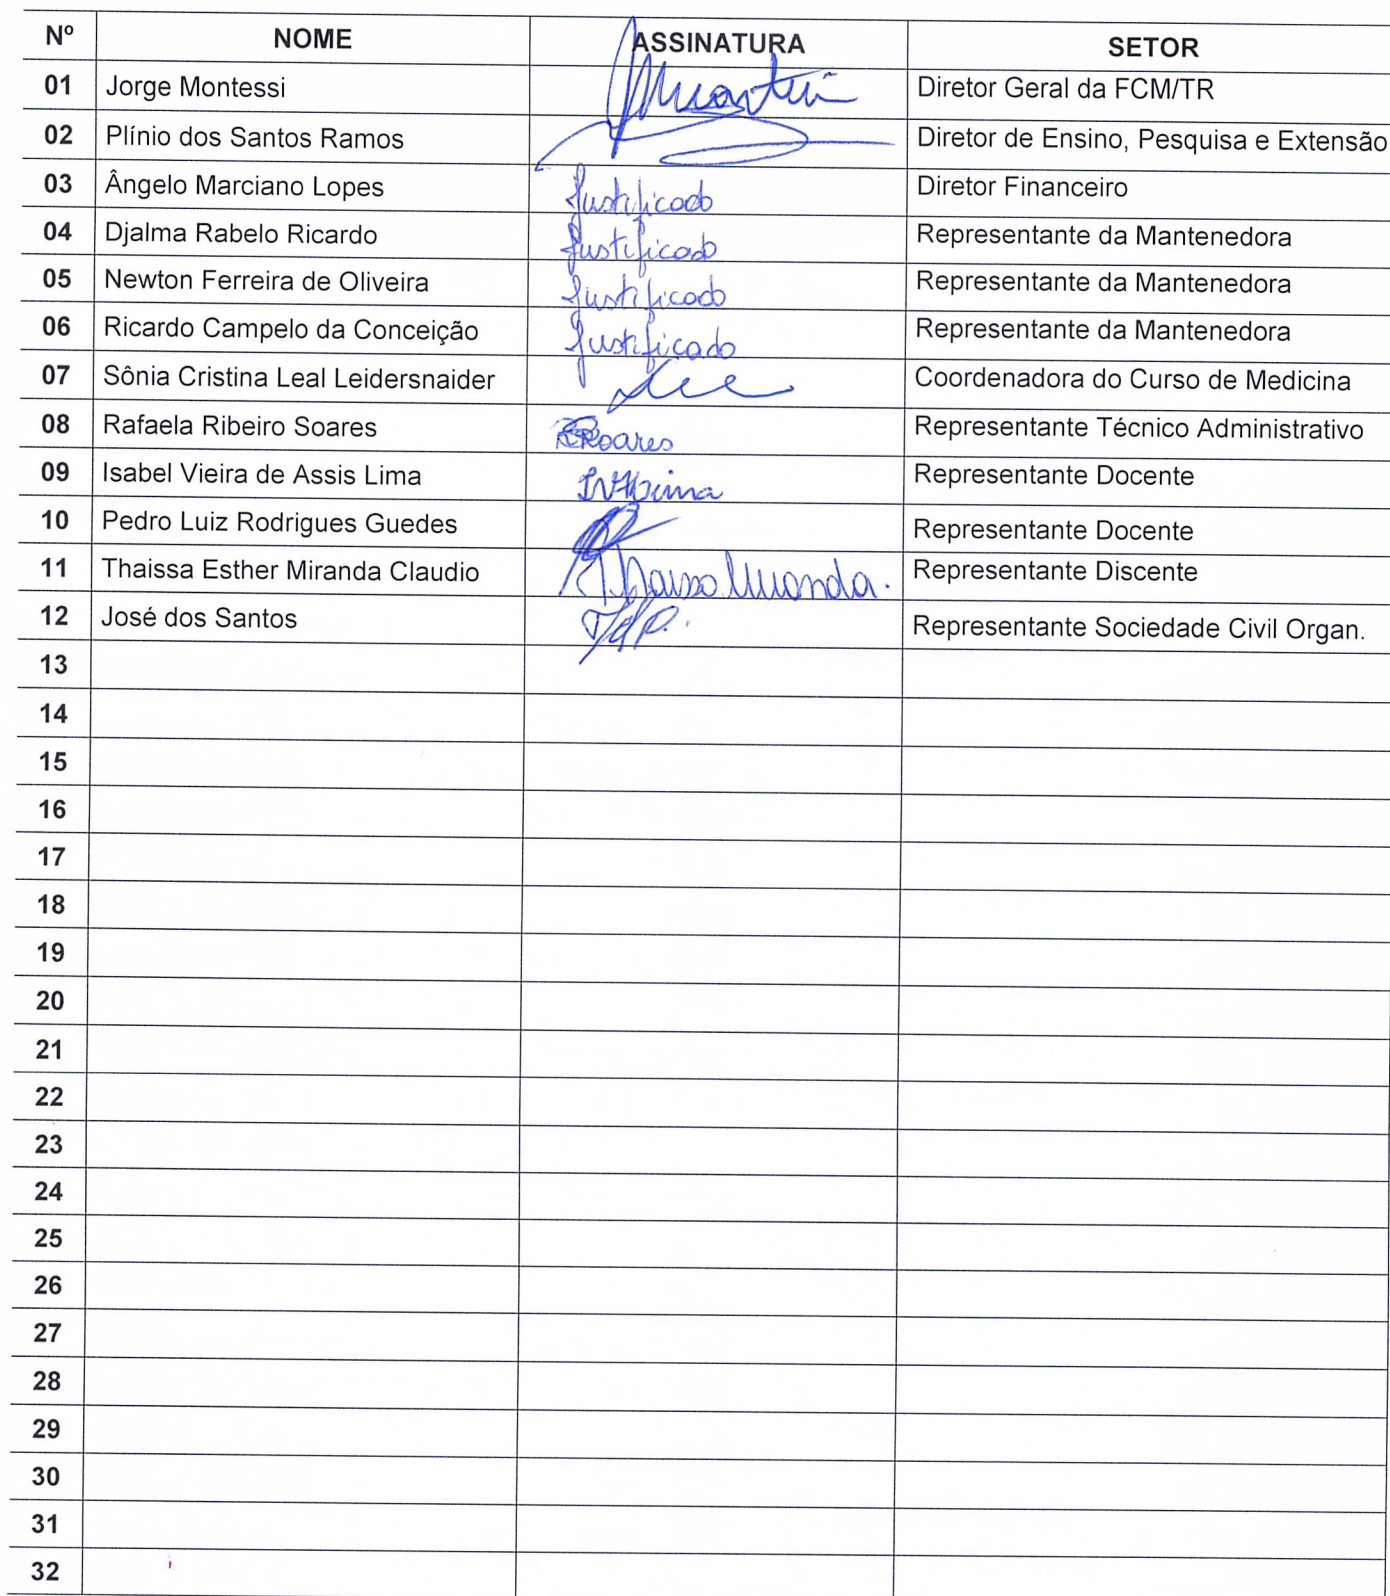 Nº NOME ASSINATURA SETOR
01 Jorge Montessi Diretor Geral da FCM/TR
02 Plínio dos Santos Ramos Diretor de Ensino, Pesquisa e Extensão
03 Ângelo Marciano Lopes Justificado Diretor Financeiro
04 Djalma Rabelo Ricardo Justificado Representante da Mantenedora
05 Newton Ferreira de Oliveira Justificado Representante da Mantenedora
06 Ricardo Campelo da Conceição Justificado Representante da Mantenedora
07 Sônia Cristina Leal Leidersnaider Coordenadora do Curso de Medicina
08 Rafaela Ribeiro Soares RRSoares Representante Técnico Administrativo
09 Isabel Vieira de Assis Lima IVALima Representante Docente
10 Pedro Luiz Rodrigues Guedes Representante Docente
11 Thaissa Esther Miranda Claudio Thaissa Miranda. Representante Discente
12 José dos Santos Representante Sociedade Civil Organ.
13
14
15
16
17
18
19
20
21
22
23
24
25
26
27
28
29
30
31
32